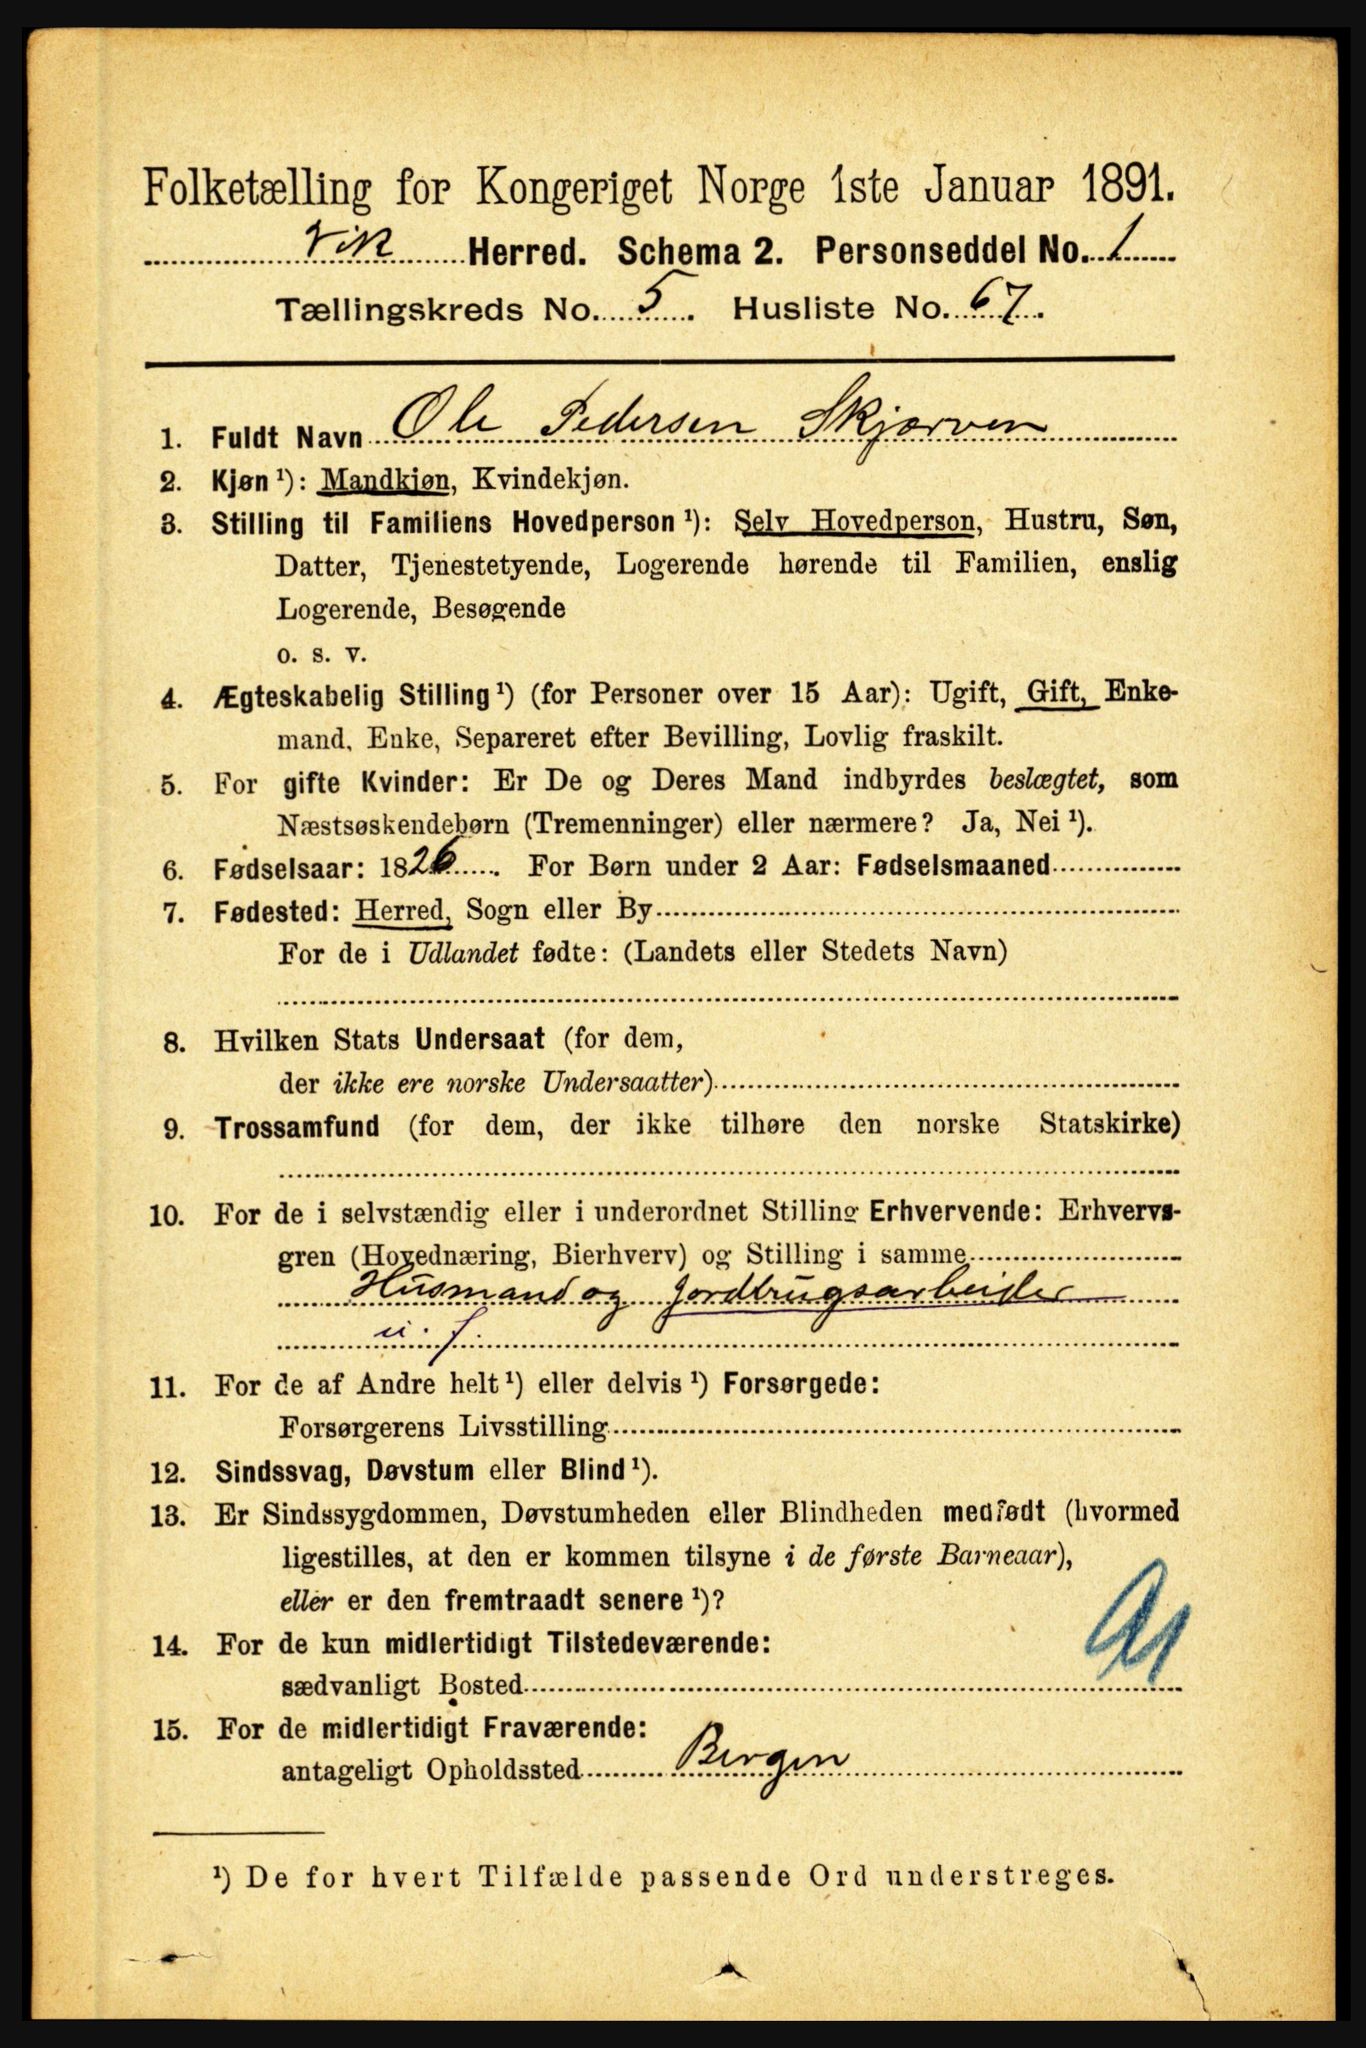 Folketælling for Kongeriget Norge 1ste Januar 1891.
Vik Herred. Schema 2. Personseddel No. 1
Tællingskreds No. 5. Husliste No. 67.
1. Fuldt Navn Ole Pedersen Skjørven
2. Kjøn ¹): Mandkjøn, Kvindekjøn.
3. Stilling til Familiens Hovedperson ¹): Selv Hovedperson, Hustru, Søn,
Datter, Tjenestetyende, Logerende hørende til Familien, enslig
Logerende, Besøgende
o. s. v.
4. Ægteskabelig Stilling ¹) (for Personer over 15 Aar): Ugift, Gift, Enke-
mand, Enke, Separeret efter Bevilling, Lovlig fraskilt.
5. For gifte Kvinder: Er De og Deres Mand indbyrdes beslægtet, som
Næstsøskendebørn (Tremenninger) eller nærmere? Ja, Nei ¹).
6. Fødselsaar: 1826. For Børn under 2 Aar: Fødselsmaaned
7. Fødested: Herred, Sogn eller By
For de i Udlandet fødte: (Landets eller Stedets Navn)
8. Hvilken Stats Undersaat (for dem,
der ikke ere norske Undersaatter)
9. Trossamfund (for dem, der ikke tilhøre den norske Statskirke)
10. For de i selvstændig eller i underordnet Stilling Erhvervende: Erhvervs-
gren (Hovednæring, Bierhverv) og Stilling i samme
Husmand og Jordbrugsarbeider
u. f.
11. For de af Andre helt ¹) eller delvis ¹) Forsørgede:
Forsørgerens Livsstilling
12. Sindssvag, Døvstum eller Blind ¹).
13. Er Sindssygdommen, Døvstumheden eller Blindheden medfødt (hvormed
ligestilles, at den er kommen tilsyne i de første Barneaar),
eller er den fremtraadt senere ¹)?
14. For de kun midlertidigt Tilstedeværende:
sædvanligt Bosted
15. For de midlertidigt Fraværende:
antageligt Opholdssted Bergen
¹) De for hvert Tilfælde passende Ord understreges.